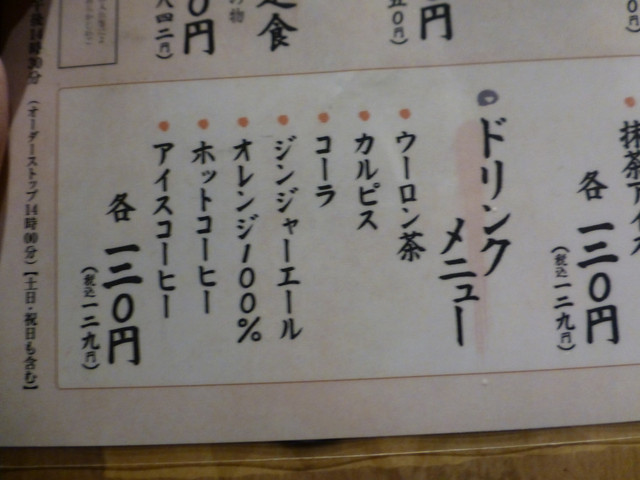 抹茶アイス
各 一二〇円
(税込一二九円)
定食
の物
〇円
八四二円)
〇円
五〇円)
ドリンク
メニュー
ウーロン茶
カルピス
コーラ
ジンジャーエール
オレンジ100%
ホットコーヒー
アイスコーヒー
各 一二〇円
(税込一二九円)
午後14時30分 (オーダーストップ14時00分)【土日・祝日も含む】